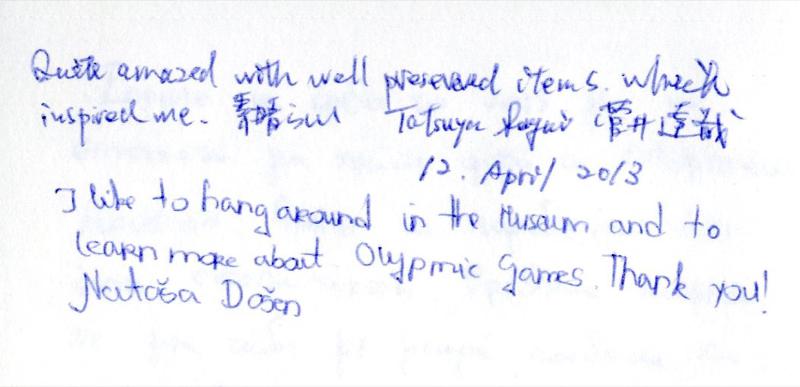 Quite amazed with well preserved items. which
inspired me. 素晴らしい Tatsuya Sugai 菅井達哉
12. April 2013
I like to hang around in the Museum and to
learn more about Olypmic Games. Thank you!
Nataša Došen